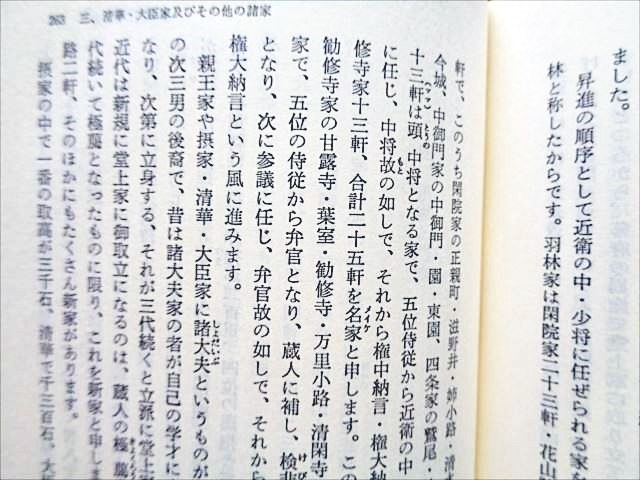 ました。
昇進の順序として近衛の中・少将に任ぜられる家を
林と称したからです。羽林家は閑院家二十三軒・花山院
263 三、清華・大臣家及びその他の諸家
軒で、このうち閑院家の正親町・滋野井・姉小路・清水
今城、中御門家の中御門・園・東園、四条家の鷲尾・
十三軒は頭中将となる家で、五位侍従から近衛の中
に任じ、中将故の如しで、それから権中納言・権大納
修寺家十三軒、合計二十五軒を名家と申します。この
勧修寺家の甘露寺・葉室・勧修寺・万里小路・清閑寺
家で、五位の侍従から弁官となり、蔵人に補し、検非
となり、次に参議に任じ、弁官故の如しで、それから
権大納言という風に進みます。
親王家や摂家・清華・大臣家に諸大夫というものが
の次三男の後裔で、昔は諸大夫家の者が自己の学才に
なり、次第に立身する、それが三代続くと立派に堂上家
近代は新規に堂上家に御取立になるのは、蔵人の極﨟
代続いて極﨟となったものに限り、これを新家と申しま
路二軒、そのほかにもたくさん新家があります。
摂家の中で一番の取高が三千石、清華で千三百石、大臣